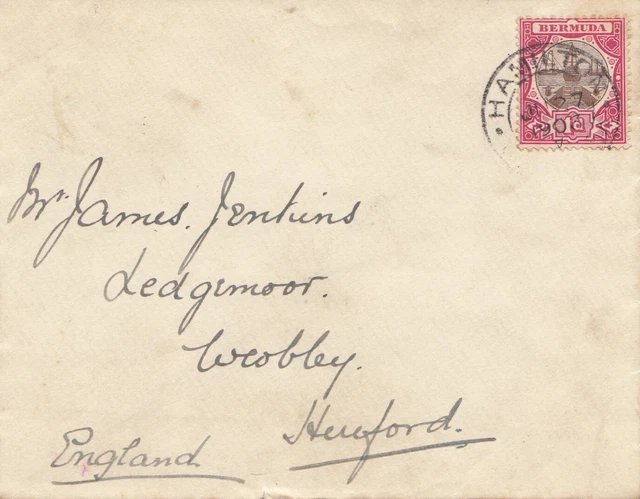 BERMUDA
HAMILTON
27
Mr. James. Jenkins
Ledgemoor.
Weobley.
Hereford.
England